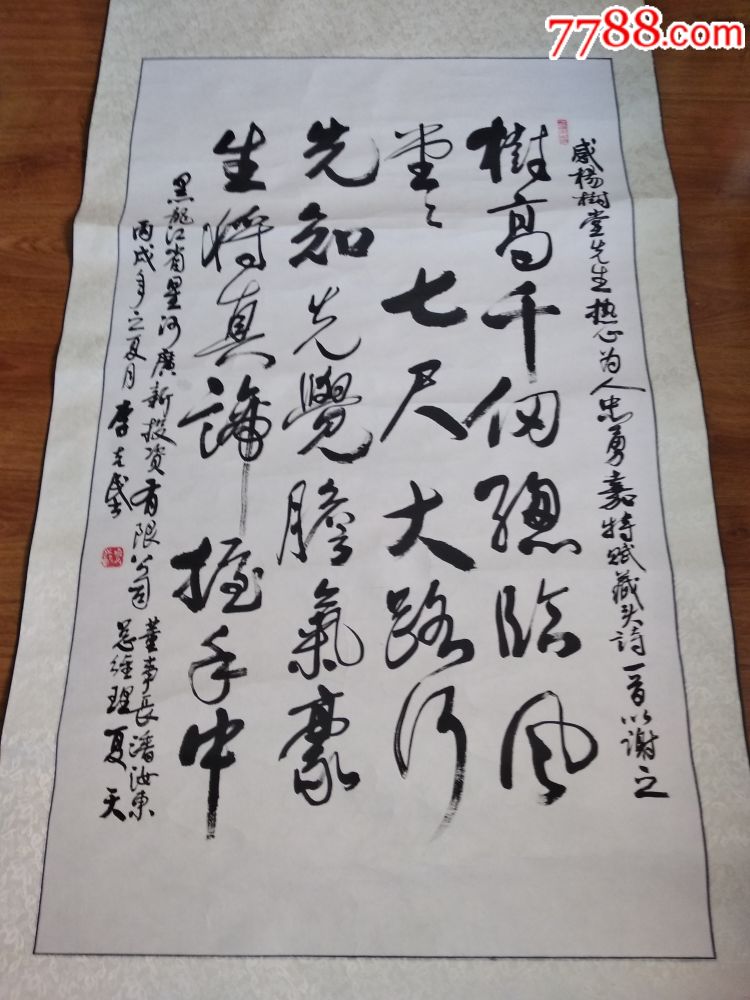 7788.com
感楊樹堂先生热心为人忠勇嘉特赋藏头诗一首以谢之
樹高千仞總臨風
堂〻七尺大路行
先知先覺膽氣豪
生將真諦握手中
黑龍江省星河廣新投资有限公司 董事長潘汝東
总經理夏天
丙戌年之夏月 李